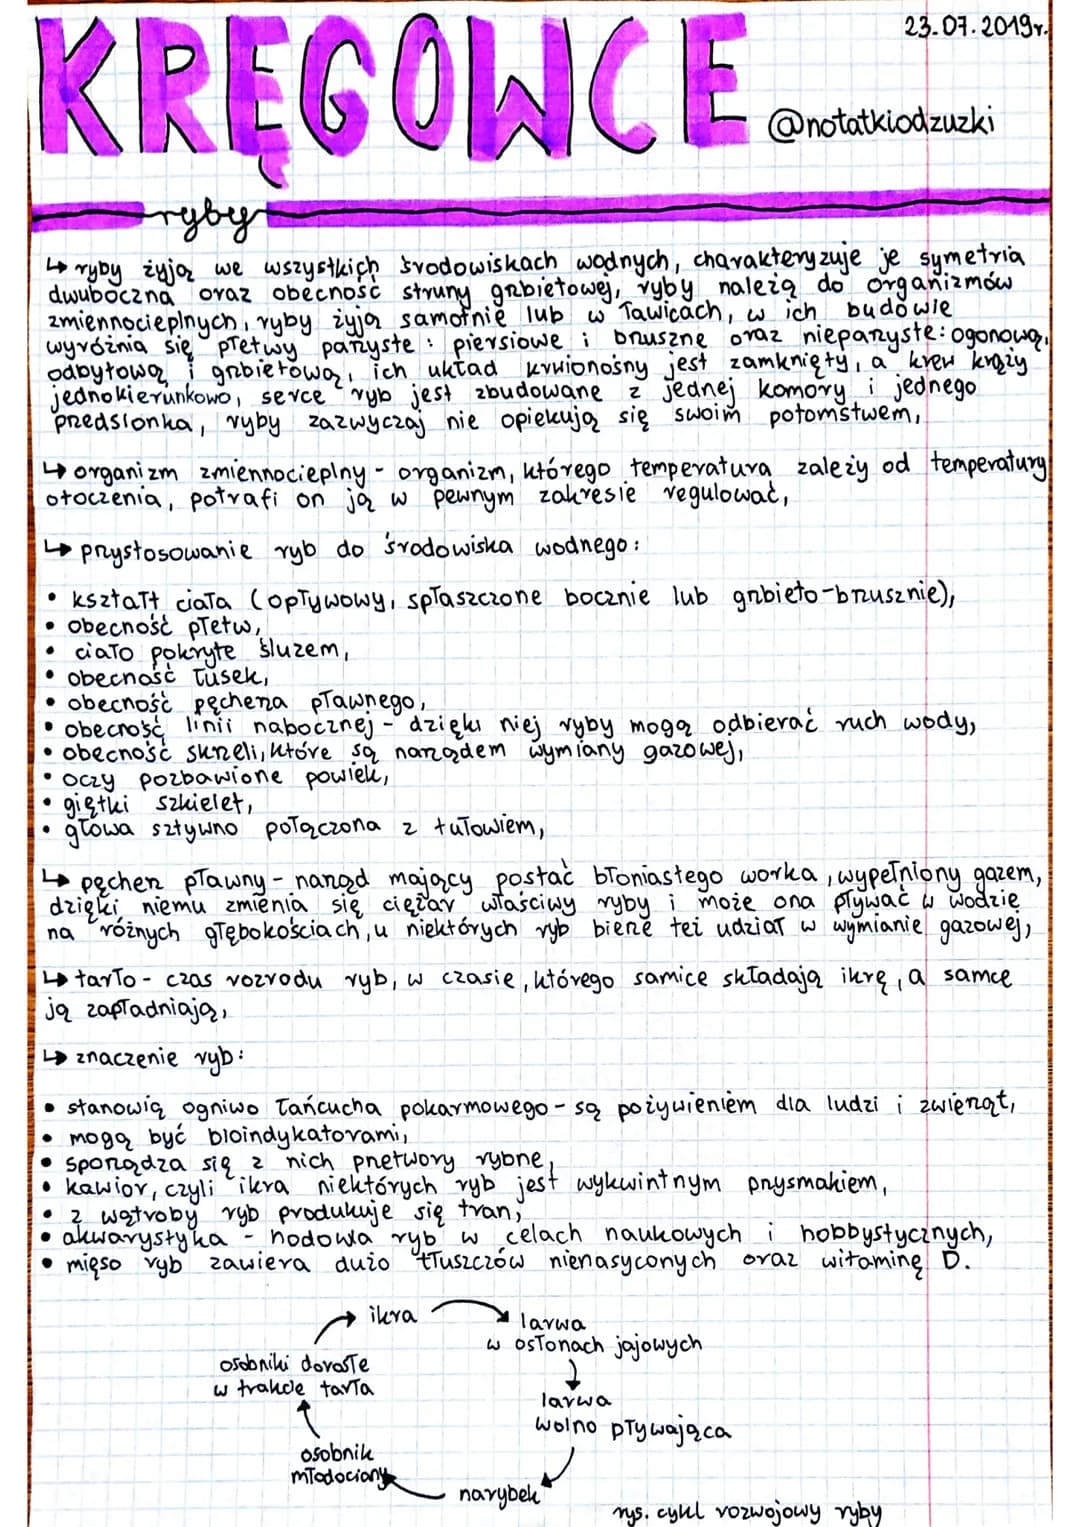 23.07.2019r.
KRĘGOWCE
@notatkiodzuzki
ryby
↳ ryby żyją we wszystkich środowiskach wodnych, charakteryzuje je symetria
dwuboczna oraz obecność struny grzbietowej, ryby należą do organizmów
zmiennocieplnych, ryby żyją samotnie lub w ławicach, w ich budowie
wyróżnia się płetwy parzyste: piersiowe i brzuszne oraz nieparzyste: ogonową,
odbytową i grzbietową, ich układ krwionośny jest zamknięty, a krew krąży
jednokierunkowo, serce ryb jest zbudowane z jednej komory i jednego
przedsionka, ryby zazwyczaj nie opiekują się swoim potomstwem,
↳ organizm zmiennocieplny - organizm, którego temperatura zależy od temperatury
otoczenia, potrafi on ją w pewnym zakresie regulować,
↳ przystosowanie ryb do środowiska wodnego:
• kształt ciała (opływowy, spłaszczone bocznie lub grzbieto-brzusznie),
• obecność płetw,
• ciało pokryte śluzem,
• obecność łusek,
• obecność pęcherza pławnego,
• obecność linii nabocznej - dzięki niej ryby mogą odbierać ruch wody,
• obecność skrzeli, które są narządem wymiany gazowej,
• oczy pozbawione powiek,
• giętki szkielet,
• głowa sztywno połączona z tułowiem,
↳ pęcherz pławny - narząd mający postać błoniastego worka, wypełniony gazem,
dzięki niemu zmienia się ciężar właściwy ryby i może ona pływać w wodzie
na różnych głębokościach, u niektórych ryb bierze też udział w wymianie gazowej,
↳ tarło - czas rozrodu ryb, w czasie, którego samice składają ikrę, a samce
ją zapładniają,
↳ znaczenie ryb:
• stanowią ogniwo łańcucha pokarmowego - są pożywieniem dla ludzi i zwierząt,
• mogą być bioindykatorami,
• sporządza się z nich przetwory rybne,
• kawior, czyli ikra niektórych ryb jest wykwintnym przysmakiem,
• z wątroby ryb produkuje się tran,
• akwarystyka - hodowla ryb w celach naukowych i hobbystycznych,
• mięso ryb zawiera dużo tłuszczów nienasyconych oraz witaminę D.
ikra
larwa
w osłonach jajowych
larwa
wolno pływająca
narybek
osobnik
młodociany
osobniki dorosłe
w trakcie tarła
rys. cykl rozwojowy ryby